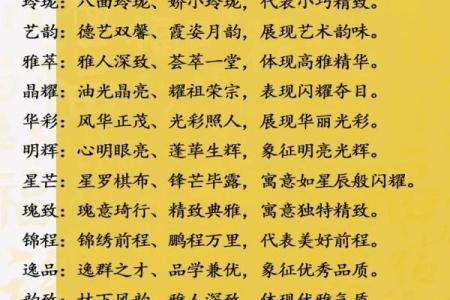 玲珑：八面玲珑、娇小玲珑，代表小巧精致。
艺韵：德艺双馨、霞姿月韵，展现艺术韵味。
雅萃：雅人深致、荟萃一堂，体现高雅精华。
晶耀：油光晶亮、耀祖荣宗，表现闪耀夺目。
华彩：风华正茂、光彩照人，展现华丽光彩。
明辉：心明眼亮、蓬荜生辉，象征明亮光辉。
星芒：星罗棋布、锋芒毕露，寓意如星辰般闪耀。
瑰致：瑰意琦行、精致典雅，寓意独特精致。
锦程：锦绣前程、鹏程万里，代表美好前程。
逸品：逸群之才、品学兼优，象征优秀品质。
韵致：林下风韵、雅人深致，体现雅致气质。